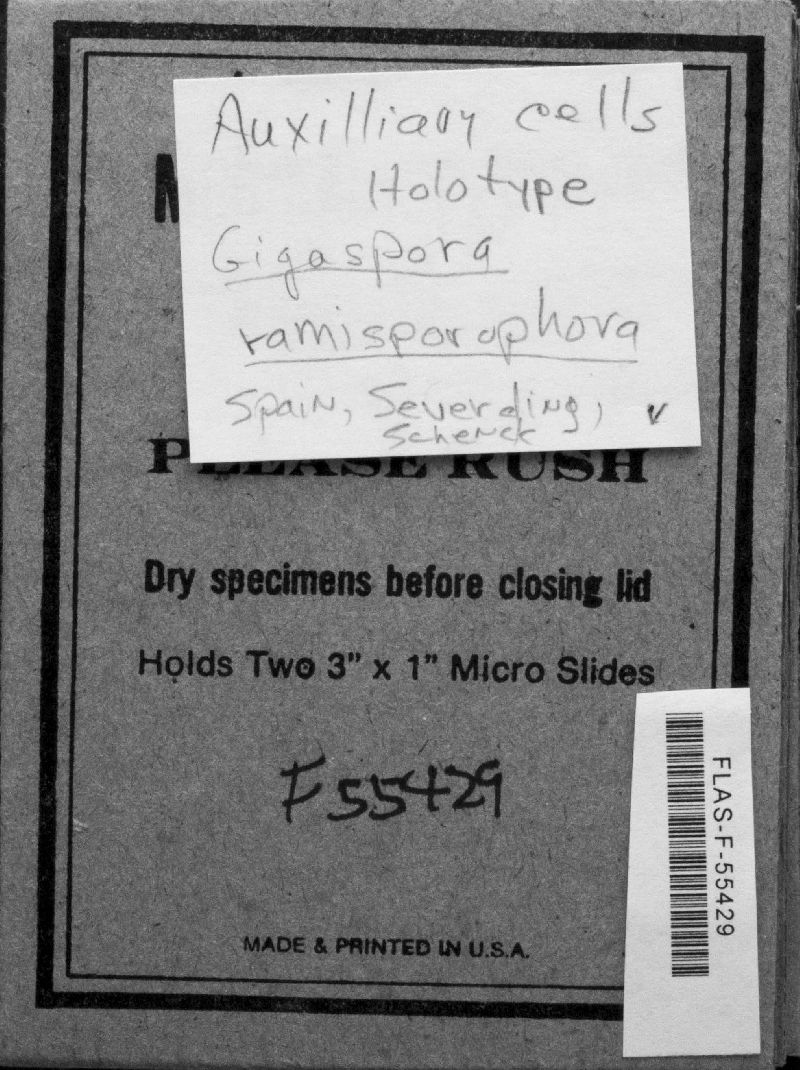 Auxilliary cells
Holotype
Gigaspora
ramisporophora
Spain, Sieverding,
Schenck
PLEASE RUSH
Dry specimens before closing lid
Holds Two 3" x 1" Micro Slides
F55429
FLAS-F-55429
MADE & PRINTED IN U.S.A.